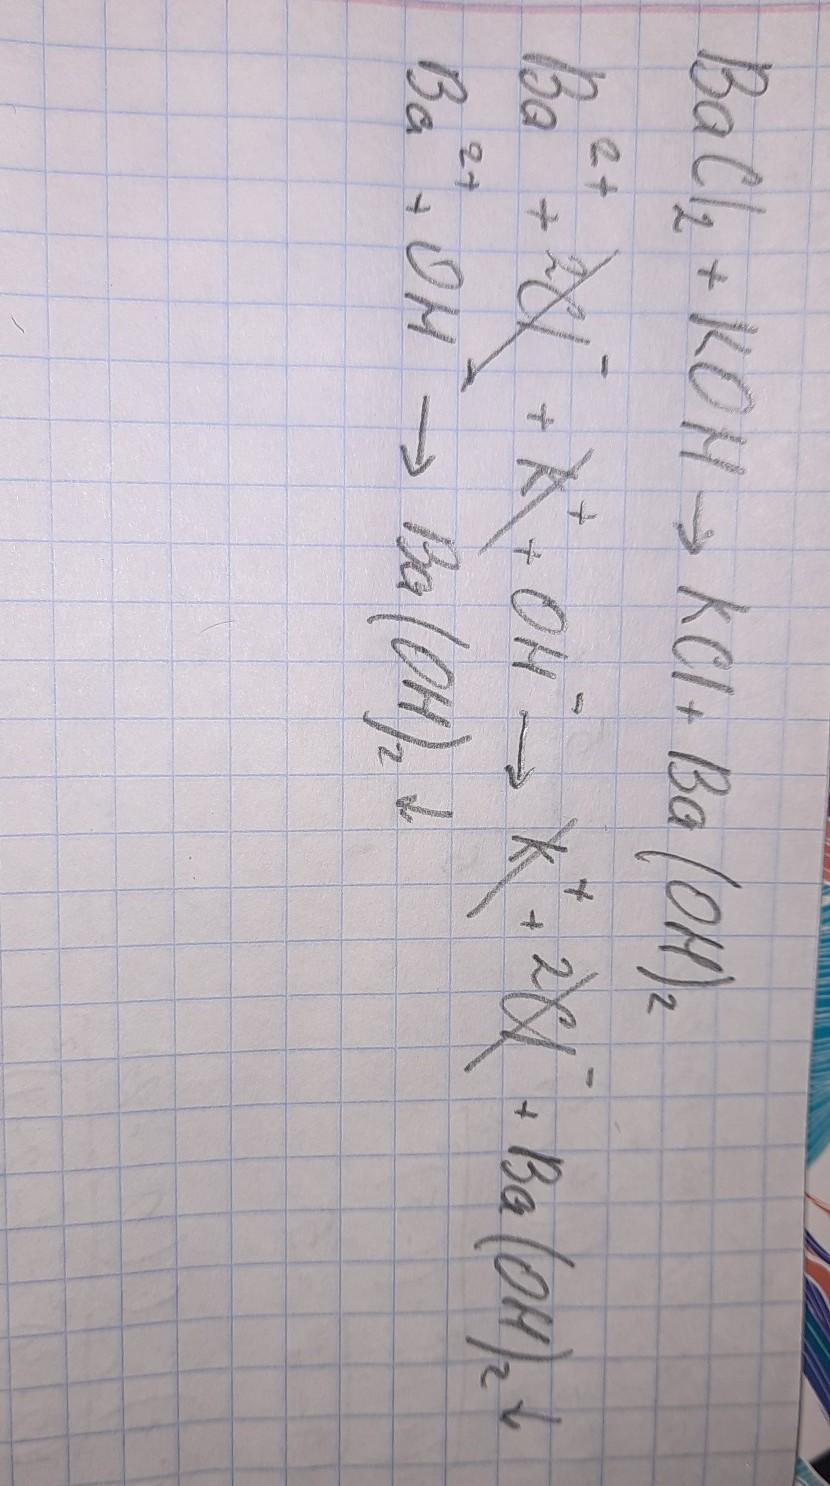 BaCl₂ + KOH → KCl + Ba(OH)₂
Ba²⁺ + 2Cl⁻ + K⁺ + OH⁻ → K⁺ + 2Cl⁻ + Ba(OH)₂↓
Ba²⁺ + OH → Ba(OH)₂↓